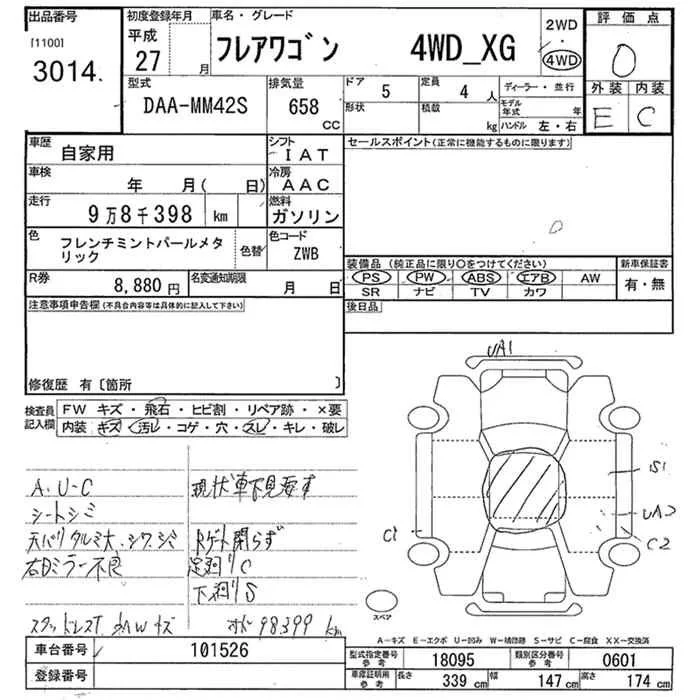 出品番号
[1100]
3014.
初度登録年月
平成
27
月
車名・グレード
フレアワゴン 4WD_XG
2WD
・
4WD
評価点
0
外装 内装
E C
型式
DAA-MM42S
排気量
658
CC
ドア
5
形状
定員
4 人
積載
kg
ディーラー・並行
モデル年式 年
ハンドル 左・右
車歴
自家用
シフト
IAT
車検
年 月( 日)
冷房
AAC
走行
9万8千398 km
燃料
ガソリン
色
フレンチミントパールメタリック
色替
色コード
ZWB
R券
8,880 円
名変通知期限
月 日
セールスポイント(正常に機能するものに限ります)
装備品 (純正品に限り○をつけてください)
PS PW ABS エアB AW
SR ナビ TV カワ
新車保証書
有・無
後日品
注意事項申告欄(不具合内容等は具体的に記入して下さい)
修復歴 有〔箇所 〕
検査員記入欄
FW キズ・飛石・ヒビ割・リペア跡・×要
内装・キズ・汚レ・コゲ・穴・スレ・キレ・破レ
A・U・C
現状車下見要す
シートシミ
天バリタルミ大・シワ・シミ
Rゲート閉らず
右Dミラー不良
足廻りC
下廻りS
98399 km
UA1
S1
UA2
C1
C2
スペア
A-キズ E-エクボ U-凹み W-補修跡 S-サビ C-腐食 XX-交換済
車台番号
101526
登録番号
型式指定番号
参考
18095
類別区分番号
参考
0601
車庫証明用
参考
長さ
339 cm
幅
147 cm
高さ
174 cm